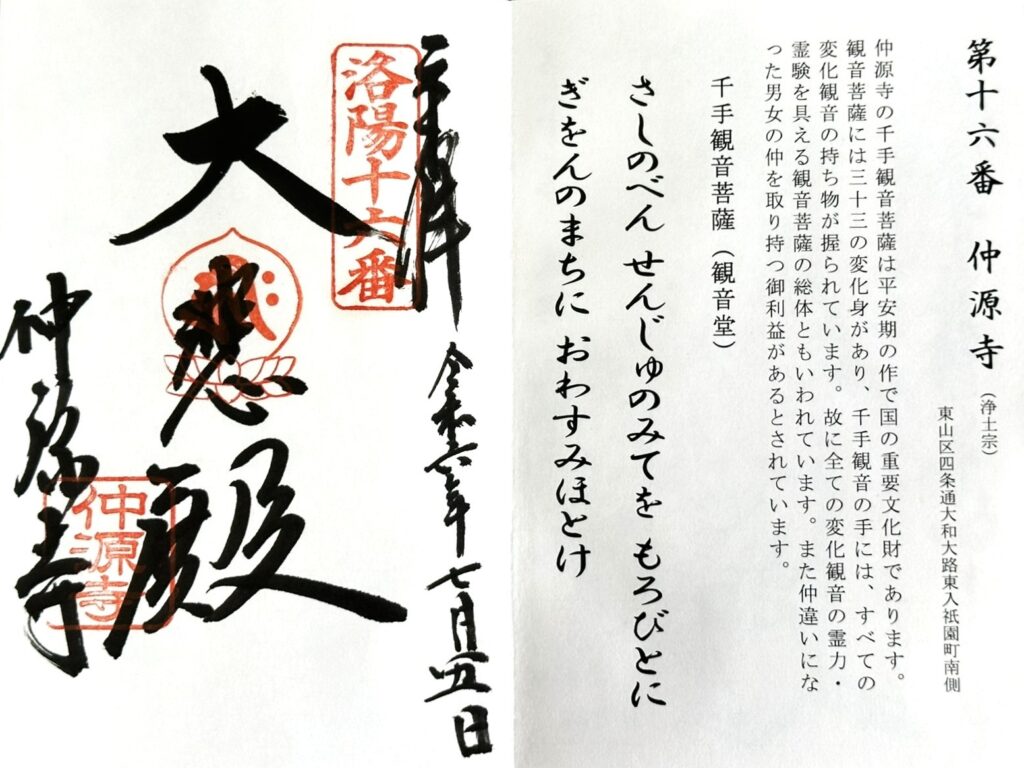 第十六番 仲源寺 (浄土宗)
東山区四条通大和大路東入祇園町南側
仲源寺の千手観音菩薩は平安期の作で国の重要文化財であります。
観音菩薩には三十三の変化身があり、千手観音の手には、すべての
変化観音の持ち物が握られています。故に全ての変化観音の霊力・
霊験を具える観音菩薩の総体ともいわれています。また仲違いにな
った男女の仲を取り持つ御利益があるとされています。
千手観音菩薩(観音堂)
さしのべん せんじゅのみてを もろびとに
ぎをんのまちに おわすみほとけ
奉拝
洛陽十六番
令和六年七月五日
大悲殿
仲源寺
仲源寺